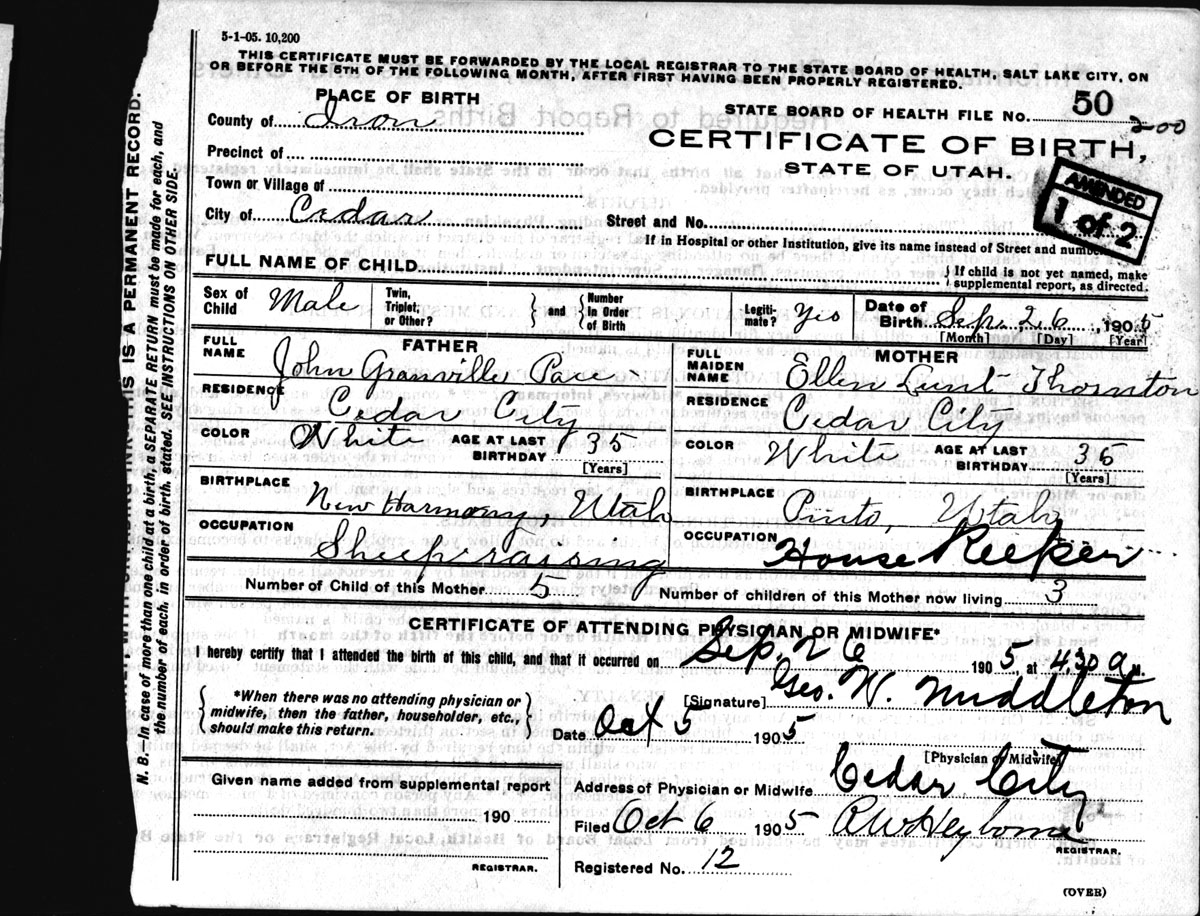 5-1-05. 10,200
THIS CERTIFICATE MUST BE FORWARDED BY THE LOCAL REGISTRAR TO THE STATE BOARD OF HEALTH, SALT LAKE CITY, ON
OR BEFORE THE 5TH OF THE FOLLOWING MONTH, AFTER FIRST HAVING BEEN PROPERLY REGISTERED.
PLACE OF BIRTH
STATE BOARD OF HEALTH FILE No. 50 200
County of Iron
CERTIFICATE OF BIRTH,
STATE OF UTAH.
AMENDED
1 of 2
Precinct of
Town or Village of
City of Cedar
Street and No.
If in Hospital or other Institution, give its name instead of Street and number.
FULL NAME OF CHILD
{ If child is not yet named, make
supplemental report, as directed.
Sex of Child Male
Twin, Triplet, or Other? } and { Number in Order of Birth
Legiti-mate? Yes
Date of Birth Sep. 26, 1905
[Month] [Day] [Year]
FATHER
FULL NAME John Granville Pace
RESIDENCE Cedar City
COLOR White AGE AT LAST BIRTHDAY 35
[Years]
BIRTHPLACE New Harmony, Utah
OCCUPATION Sheep raising
MOTHER
FULL MAIDEN NAME Ellen Lunt Thornton
RESIDENCE Cedar City
COLOR White AGE AT LAST BIRTHDAY 36
[Years]
BIRTHPLACE Pinto, Utah
OCCUPATION House Keeper
Number of Child of this Mother 5 Number of children of this Mother now living 3
CERTIFICATE OF ATTENDING PHYSICIAN OR MIDWIFE*
I hereby certify that I attended the birth of this child, and that it occurred on Sep. 26 1905, at 4,30 a.m.
{ *When there was no attending physician or
midwife, then the father, householder, etc.,
should make this return. }
[Signature] Geo. W. Middleton
Date Oct 5 1905
[Physician or Midwife]
Given name added from supplemental report
190
REGISTRAR.
Address of Physician or Midwife Cedar City
Filed Oct 6 1905 R W Heyborne
REGISTRAR.
Registered No. 12
(OVER)
IS A PERMANENT RECORD.
N. B.—In case of more than one child at a birth, a SEPARATE RETURN must be made for each, and
the number of each, in order of birth, stated. SEE INSTRUCTIONS ON OTHER SIDE.